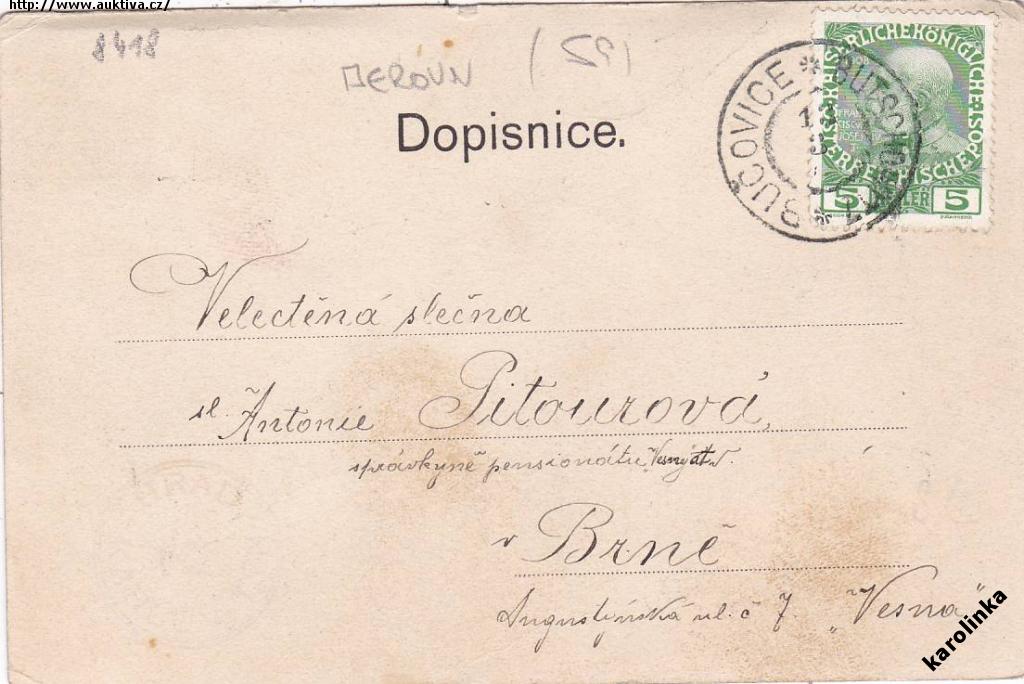 http://www.auktiva.cz/
8418
BEROUN (59)
Dopisnice.
BUČOVICE * BUTSCHOWITZ *
13
3
KAISERLICHEKÖNIGLICHE
ÖSTERREICHISCHEPOST
5 HELLER 5
Velectěná slečna
sl. Antonie Pitourová,
správkyně pensionátu
v Brně
Augustinská ul. č 7. „Vesna"
karolinka